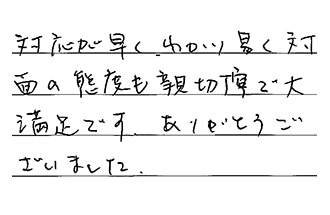 対応が早く、わかり易く対
面の態度も親切寧で大
満足です。ありがとうご
ざいました。